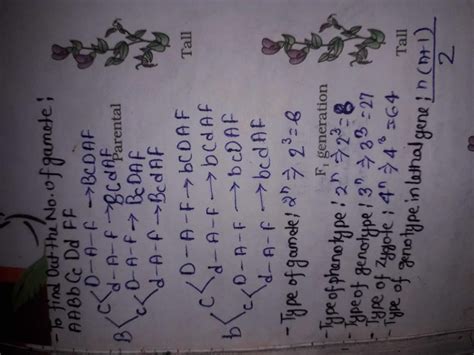 - To Find Out the No. of gamete ;
AABb Cc Dd FF
B C D-A-F → BCDAF
d-A-F → BCdAF
c D-A-F → BcDAF
d-A-F → BcdAF
b C D-A-F → bCDAF
d-A-F → bCdAF
c D-A-F → bcDAF
d-A-F → bcdAF
- Type of gamete ; 2ⁿ ⇒ 2³ = 8
- Type of phenotype ; 2ⁿ ⇒ 2³ = 8
- Type of genotype ; 3ⁿ ⇒ 3³ = 27
- Type of Zygote ; 4ⁿ ⇒ 4³ = 64
- Type of genotype in lethal gene ; n(n+1)/2
Parental
Tall
Tall
F₁ generation
Tall